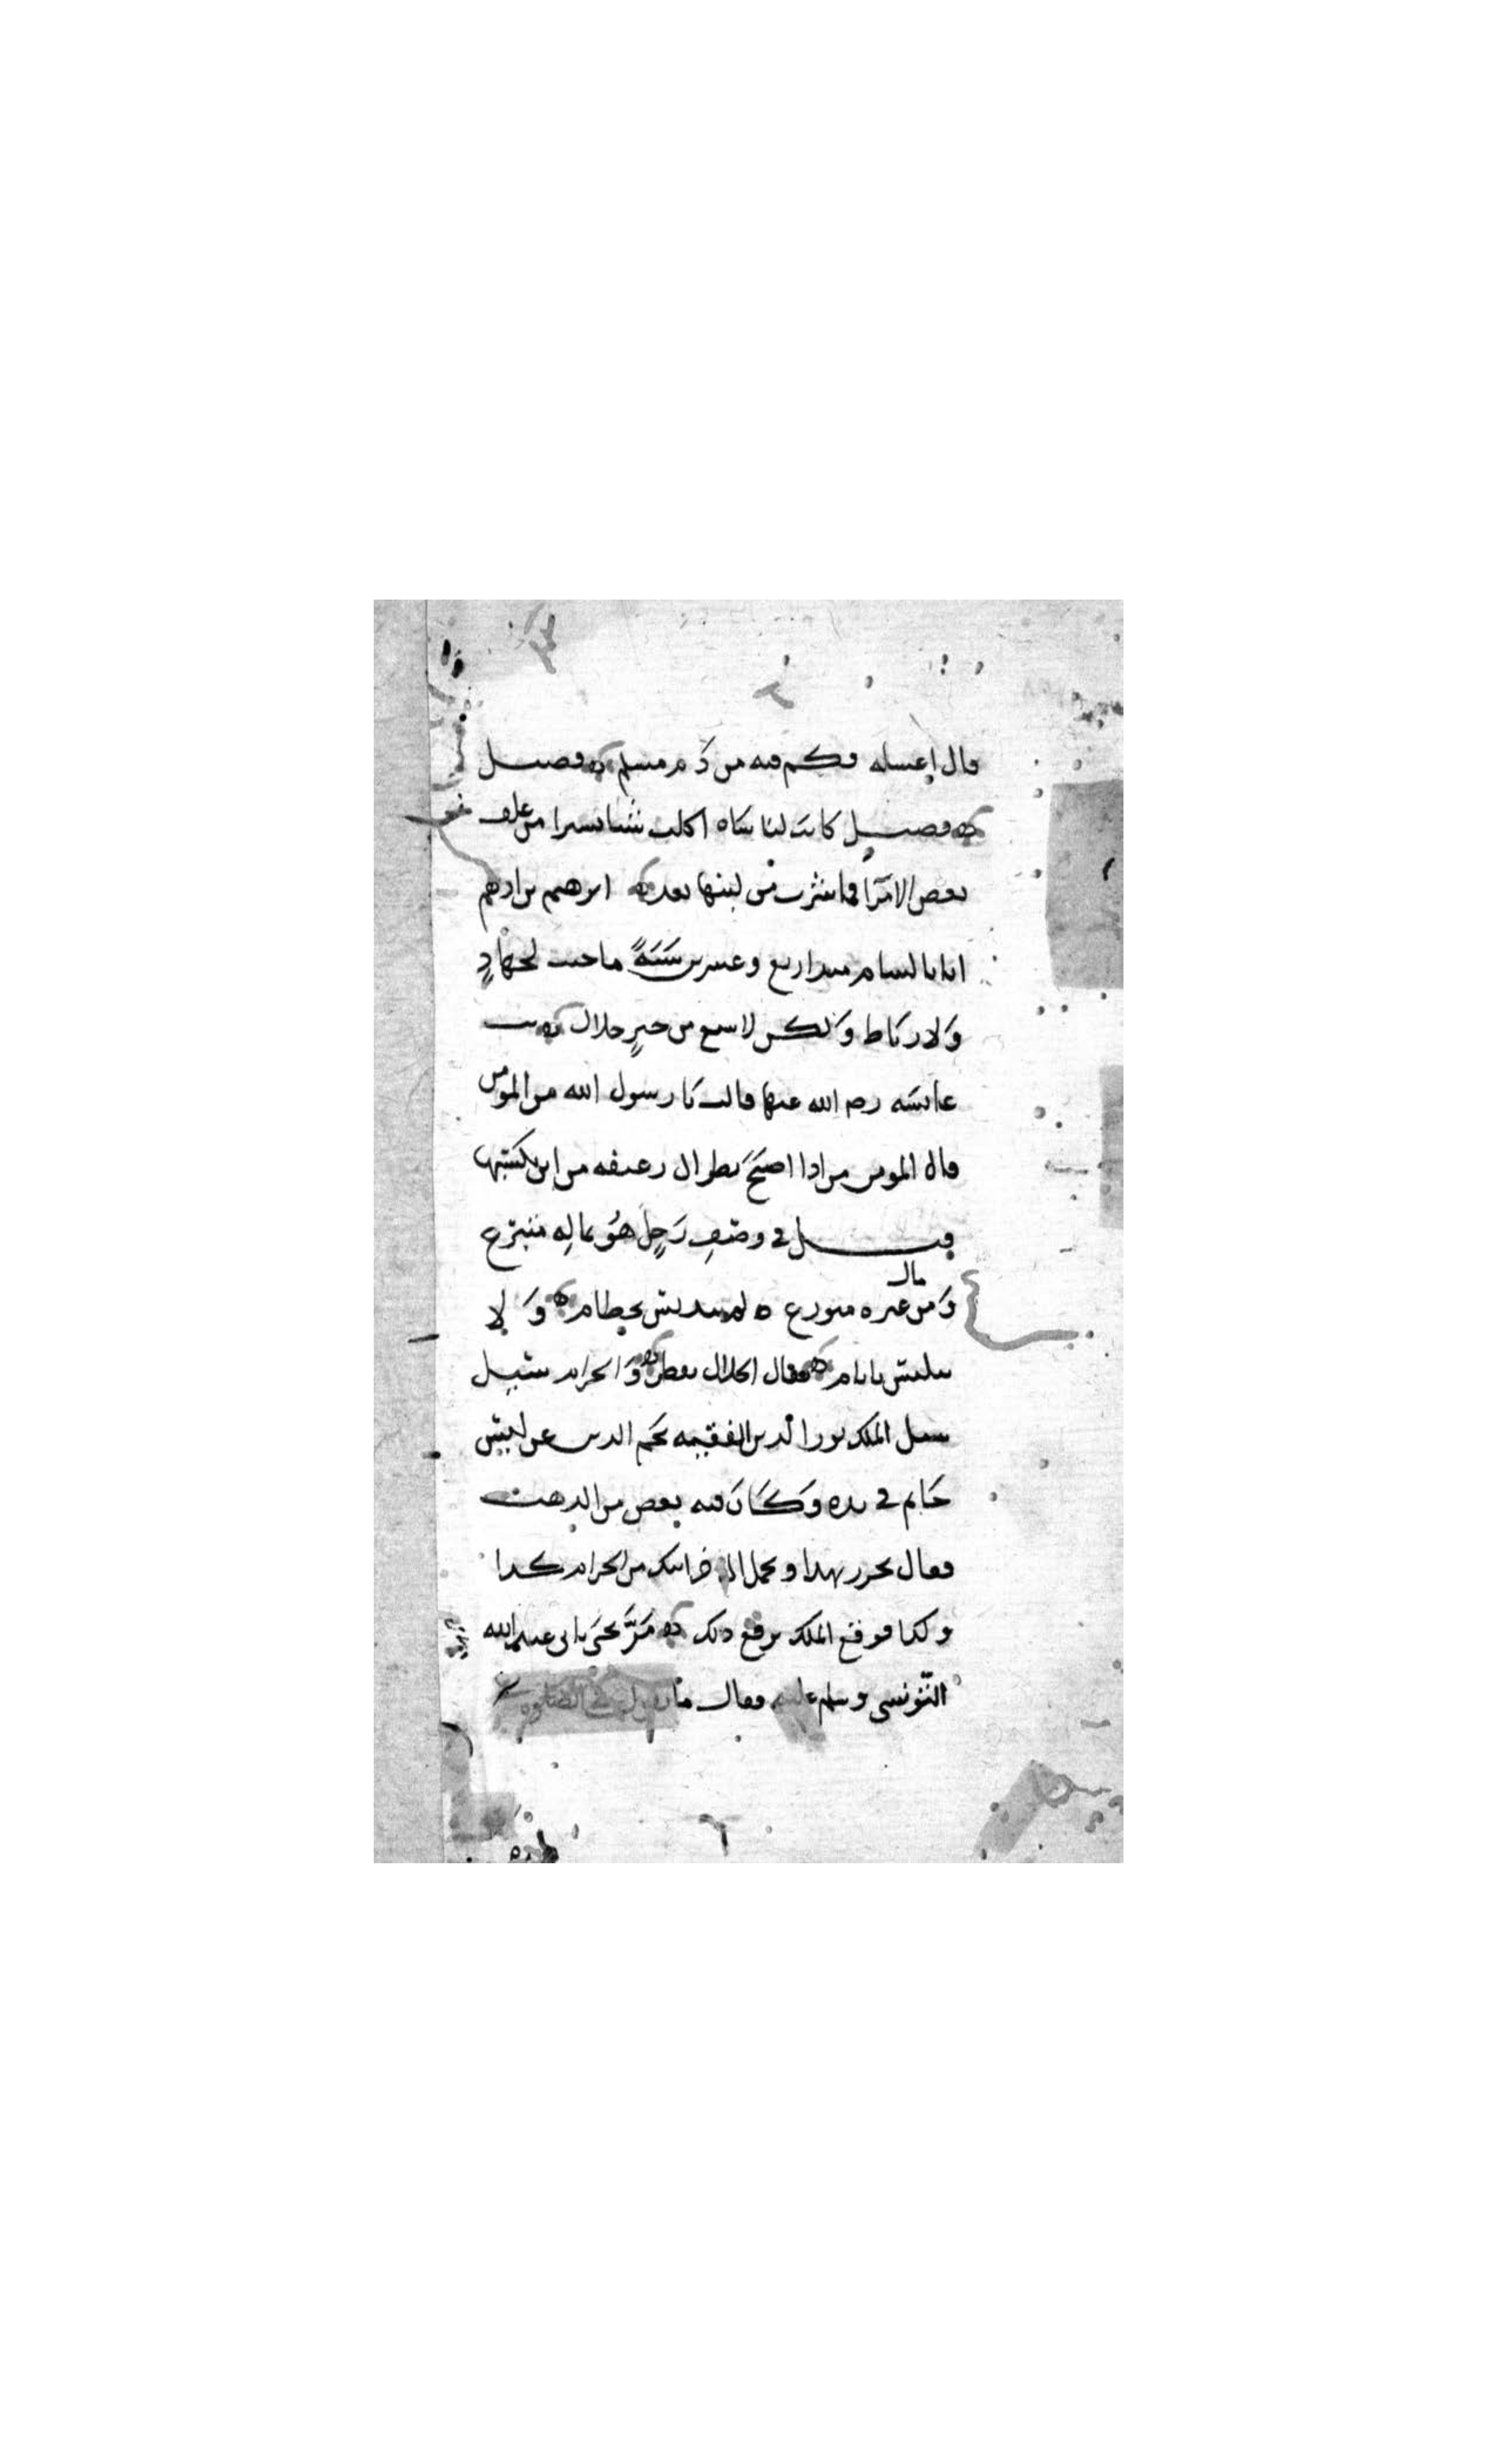 قال اغسله فكم فيه من دم مسلم ه فضيل
ه فضيل كانت لنا شاه اكلت شيا يسيرا من علف
بعض الامرآ فما شرب من لبنها بعد ه ابرهيم بن ادهم
انا بالشام منذ اربع وعشرين سَنَةً ما جيت لجهادٍ
وَلا رباط وَلكن لاشبع من خبزٍ حلال ه
عايشه رضى الله عنها قالت يا رسول الله من المومن
قال المومن من اذا اصبَحَ نظر الى رغيفه من اين يكتسبه
قيل في وصفِ رَجلٍ هُوَ بمالِه متبرع
وَمن مال غيره متورع ه لم يتدنس بحطام ه وَلا
يتلبس باثام ه فقال الحلال يقطر ه وَالحرام يسيل
سيل الملك نور الدين الفقيه نجم الدين عن لبس
خاتم في يده وَكَانَ فيه بعض من الذهب
فقال تحرز بهذا ويحمل الى خزانتك من الحرام كذا
وكذا فوقع الملك برفع ذلك ه مَرَّ يحيَى بابى عبد الله
التُّونسى وسلم عليه فقال ما تقول في الصلوه